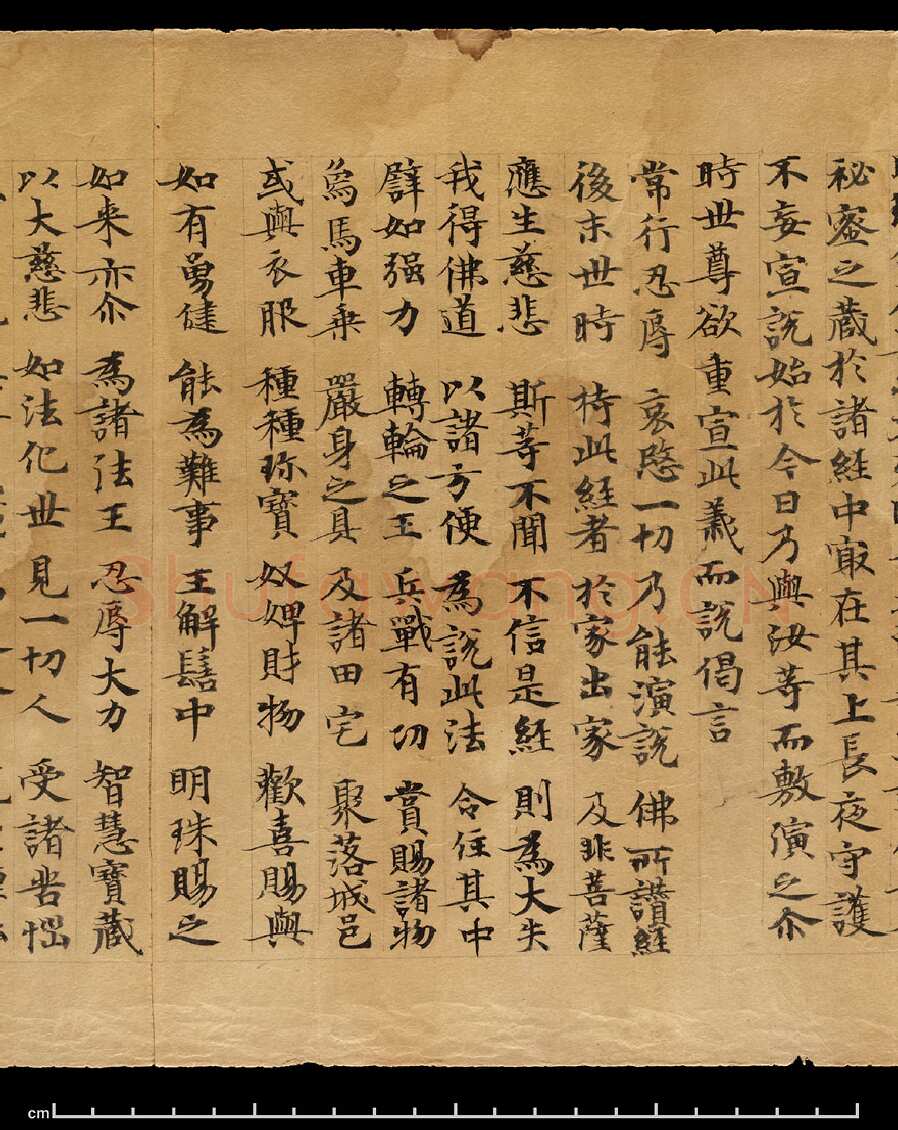 秘密之藏於諸經中冣在其上長夜守護
不妄宣說始於今日乃與汝等而敷演之尒
時世尊欲重宣此義而說偈言
常行忍辱 哀愍一切 乃能演說 佛所讚經
後末世時 持此經者 於家出家 及非菩薩
應生慈悲 斯等不聞 不信是經 則為大失
我得佛道 以諸方便 為說此法 令住其中
譬如强力 轉輪之王 兵戰有功 賞賜諸物
鳥馬車乘 嚴身之具 及諸田宅 聚落城邑
或與衣服 種種珎寶 奴婢財物 歡喜賜與
如有勇健 能為難事 王解髻中 明珠賜之
如來亦尒 為諸法王 忍辱大力 智慧寶藏
以大慈悲 如法化世 見一切人 受諸苦惱
Shufawang.CN
cm